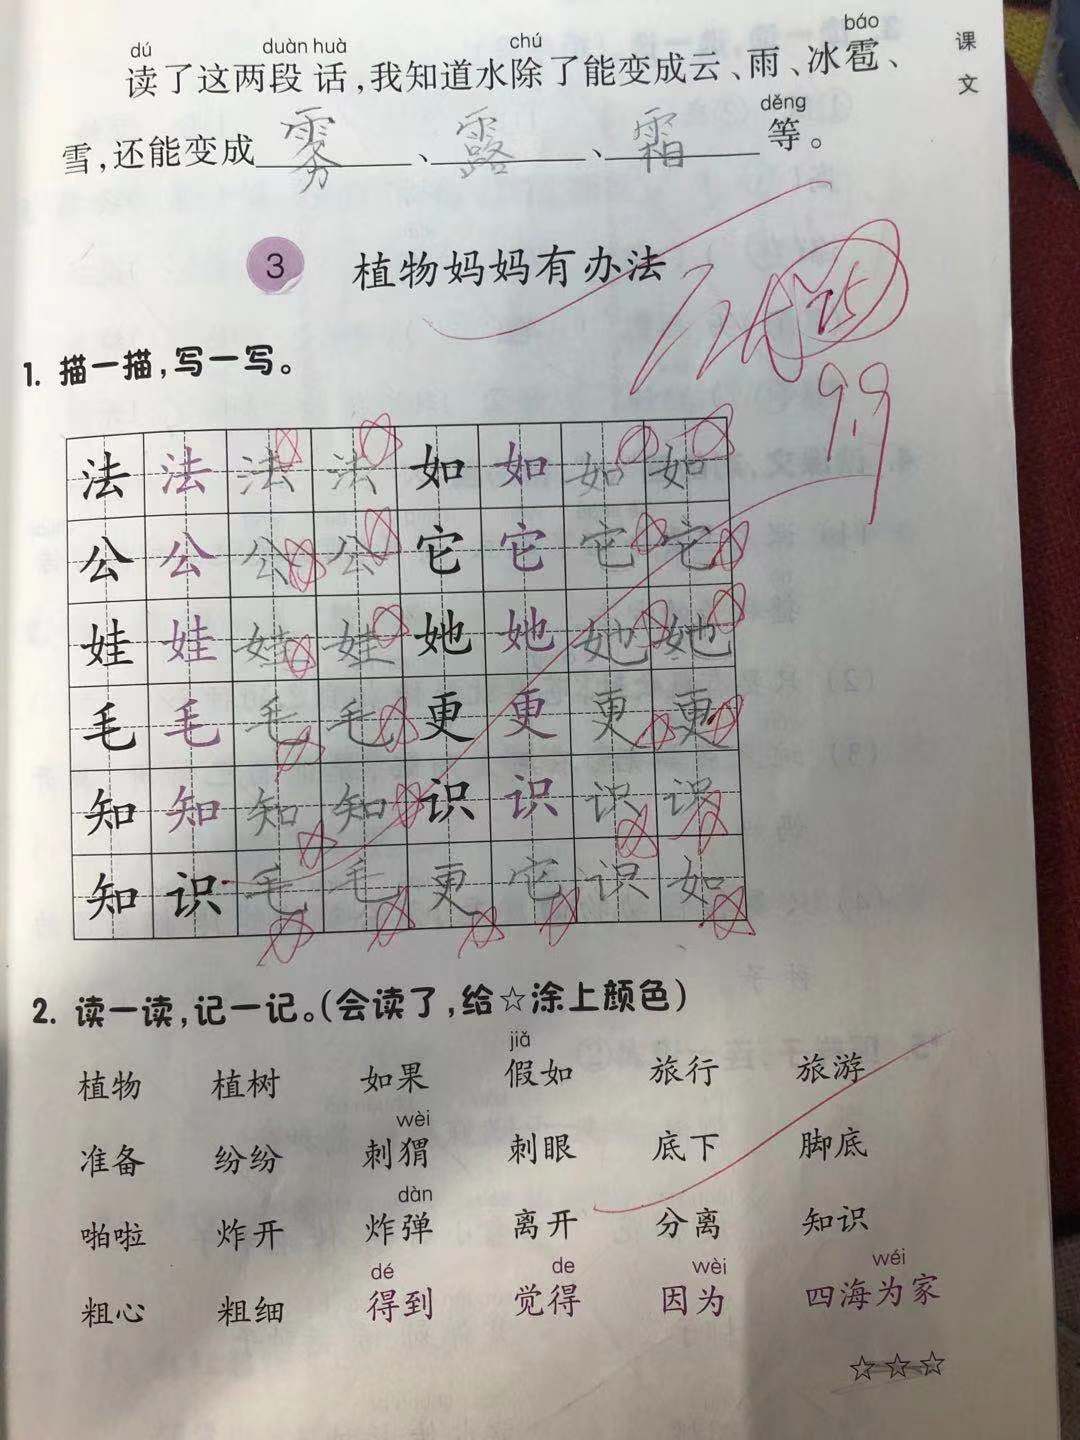 dú duàn huà chú báo
读了这两段话,我知道水除了能变成云、雨、冰雹、
děng
雪,还能变成雾、露、霜等。
课文
3 植物妈妈有办法
优 25
9.9
1. 描一描,写一写。
法 法 法 法 如 如 如 如
公 公 公 公 它 它 它 它
娃 娃 娃 娃 她 她 她 她
毛 毛 毛 毛 更 更 更 更
知 知 知 知 识 识 识 识
知 识 毛 毛 更 它 识 如
2. 读一读,记一记。(会读了,给☆涂上颜色)
jiǎ
植物 植树 如果 假如 旅行 旅游
wèi
准备 纷纷 刺猬 刺眼 底下 脚底
dàn
啪啦 炸开 炸弹 离开 分离 知识
dé de wèi wéi
粗心 粗细 得到 觉得 因为 四海为家
☆☆☆